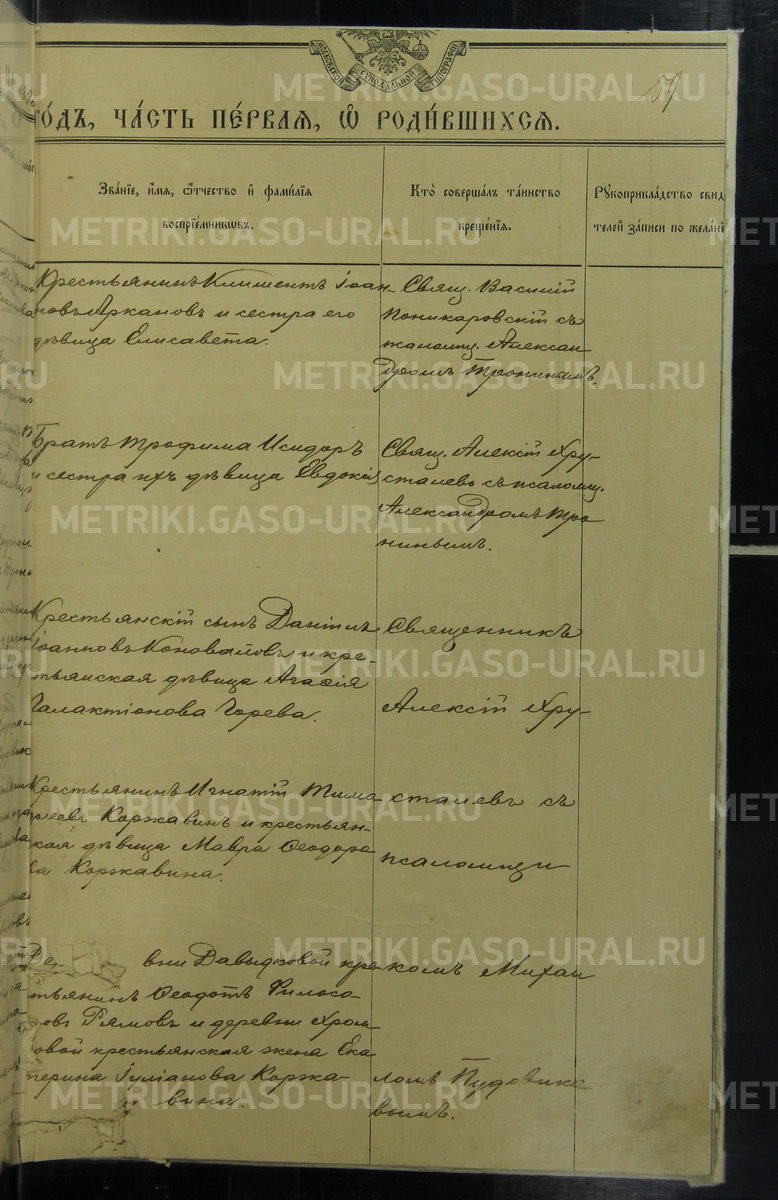 МОСКОВСКОЙ СѴНОДАЛЬНОЙ ТИПОГРАФІИ
59
го́дъ, ча́сть пе́рвая, ѡ҆ роди́вшихся.
Зва́нїе, и҆́мя, ѻ҆́тчество и҆ фами́лїя
воспрїе́мникѡвъ.
Кто̀ соверша́лъ та́инство
креще́нїя.
Рꙋкоприкла́дство свид
телей за́писи по жела́нї
Крестьянинъ Климентъ Іоан
новъ Аркановъ и сестра его
дѣвица Елисавета.
Свящ. Василій
Поникаровскій съ
псаломщ. Алексан
дромъ Трониным.
Братъ Трофима Исидоръ
и сестра ихъ дѣвица Евдокія
Свящ. Алексій Хру-
сталево съ псаломщ.
Александромъ Тро
нинымъ.
Крестьянскій сынъ Даніилъ
Іоанновъ Коноваловъ и кре-
тьянская дѣвица Агафія
Галактіонова Горева.
Священникъ
Алексій Хру-
Крестьянинъ Игнатій Тима
еевъ Коржавинъ и крестьян-
кая дѣвица Мавра Ѳеодоро
ва Коржавина.
сталевъ съ
псаломщи
Де вни Давыдковой кре
тьянинъ Ѳеодотъ Филосо
овъ Рямовъ и деревни Хром
овой крестьянская жена Ека
терина Іуліанова Коржа-
вина.
комъ Михаи
ломъ Пудовико
вымъ.
METRIKI.GASO-URAL.RU